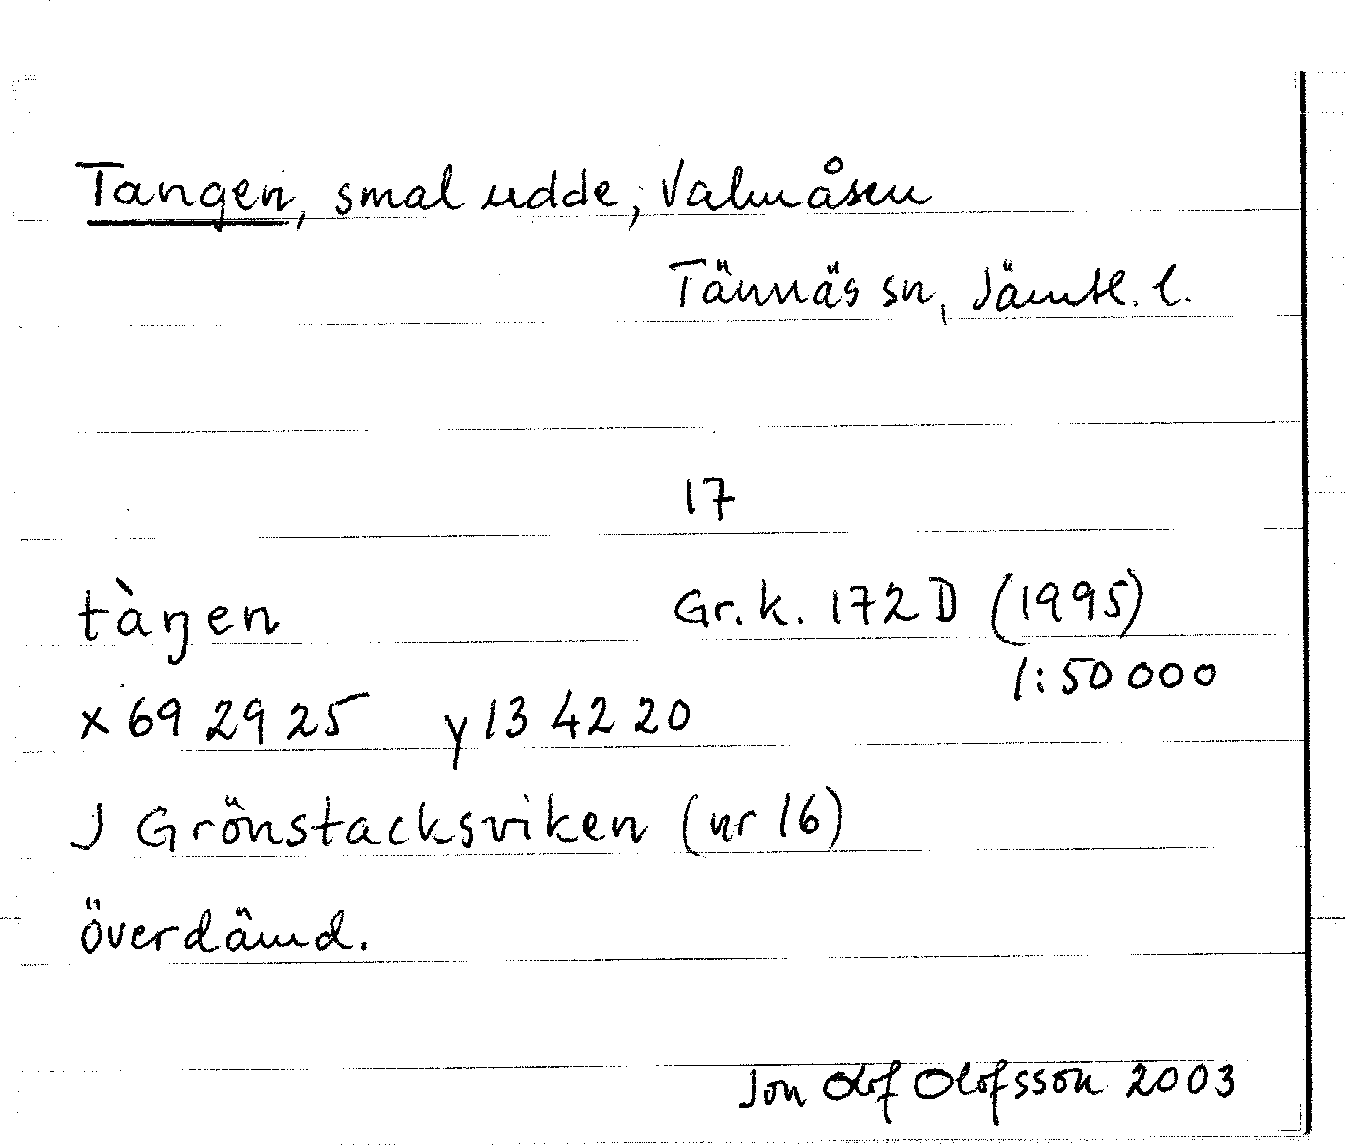 Tangen, smal udde, Valmåsen
Tännäs sn, Jämtl. l.
17
tàŋen Gr.k. 172D (1995)
1:50 000
x 69 29 25 y 13 42 20
J Grönstacksviken (nr 16)
överdämd.
Jon Olof Olofsson 2003